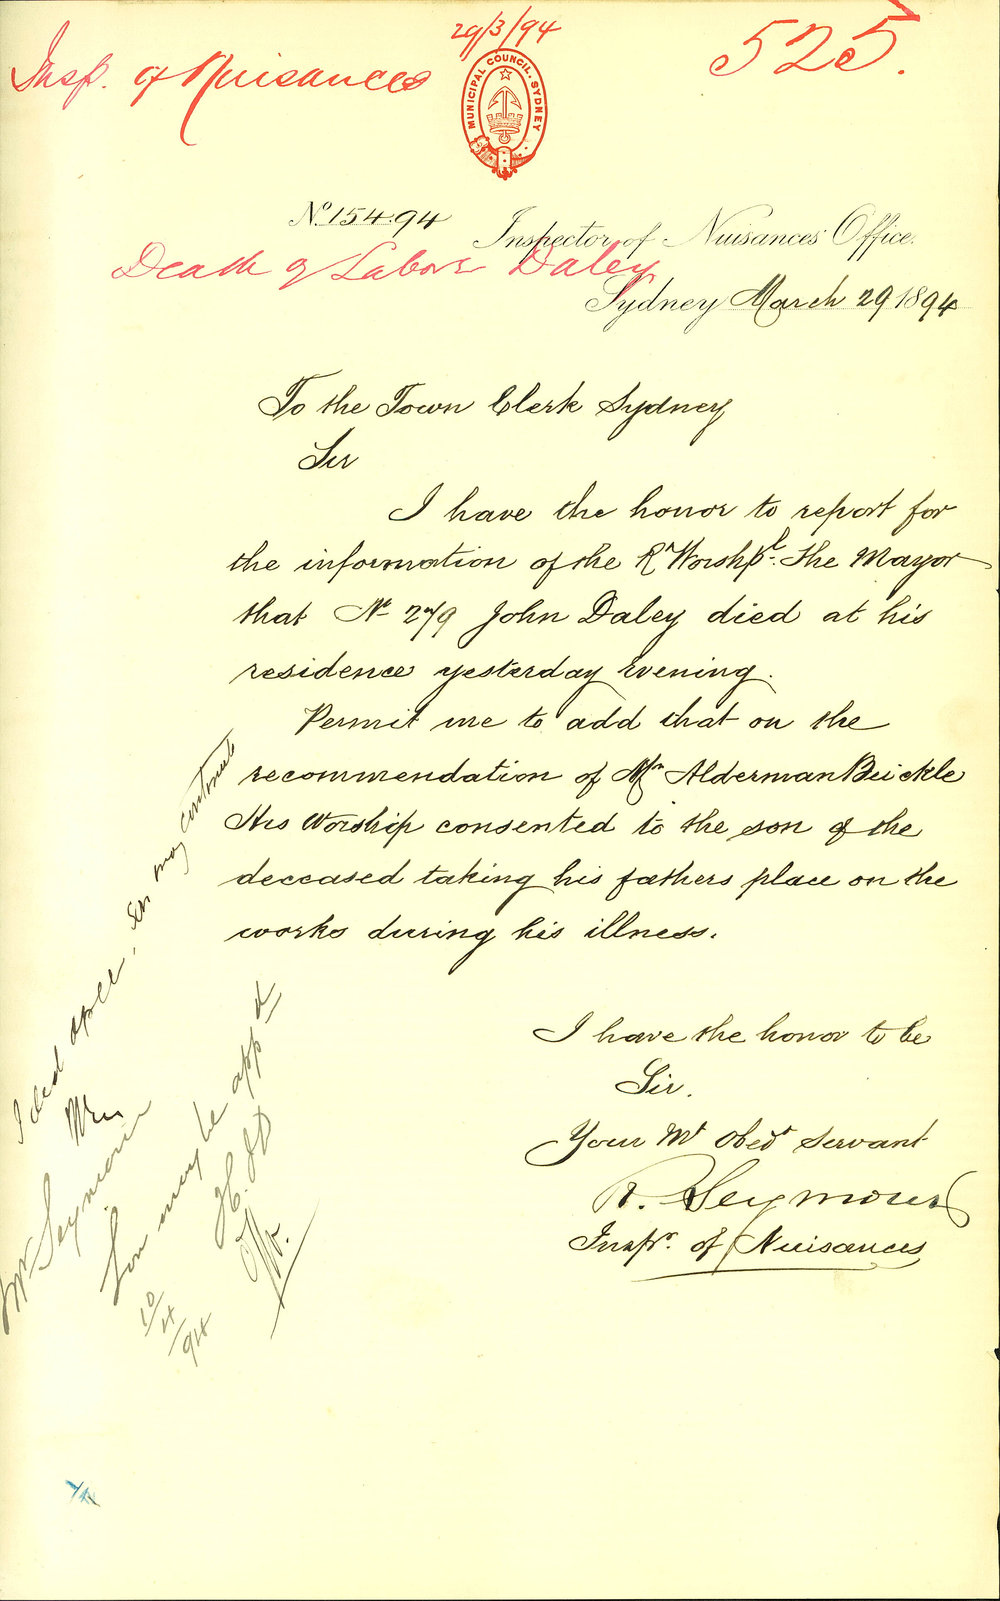 29/3/94
Insp. of Nuisances
525.
MUNICIPAL COUNCIL, SYDNEY
No. 154.94
Inspector of Nuisances Office.
Death of Labore Daley
Sydney March 29 1894
To the Town Clerk Sydney
Sir
I have the honor to report for
the information of the Rt Worshpl. The Mayor
that No 279 John Daley died at his
residence yesterday Evening.
Permit me to add that on the
recommendation of Mr Alderman Beickle
His Worship consented to the son of the
deceased taking his fathers place on the
works during his illness.
I have the honor to be
Sir.
Your Mt Obedt Servant
R. Seymour
Inspr. of Nuisances
son may continue
Mr Seymour
Son may be appd
10/4/94